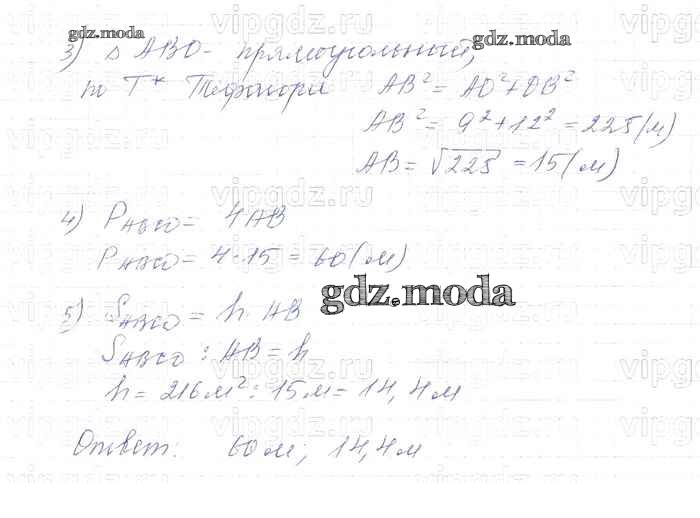 gdz.moda
gdz.moda
3) Δ ABO - прямоугольный,
по Т* Пифагора AB² = AO² + OB²
AB² = 9² + 12² = 225 (м)
AB = √225 = 15 (м)
4) P ABCD = 4 AB
P ABCD = 4 · 15 = 60 (м)
gdz.moda
5) S ABCD = h · AB
S ABCD : AB = h
h = 216 м² : 15 м = 14,4 м
Ответ: 60 м; 14,4 м
vipgdz.ru